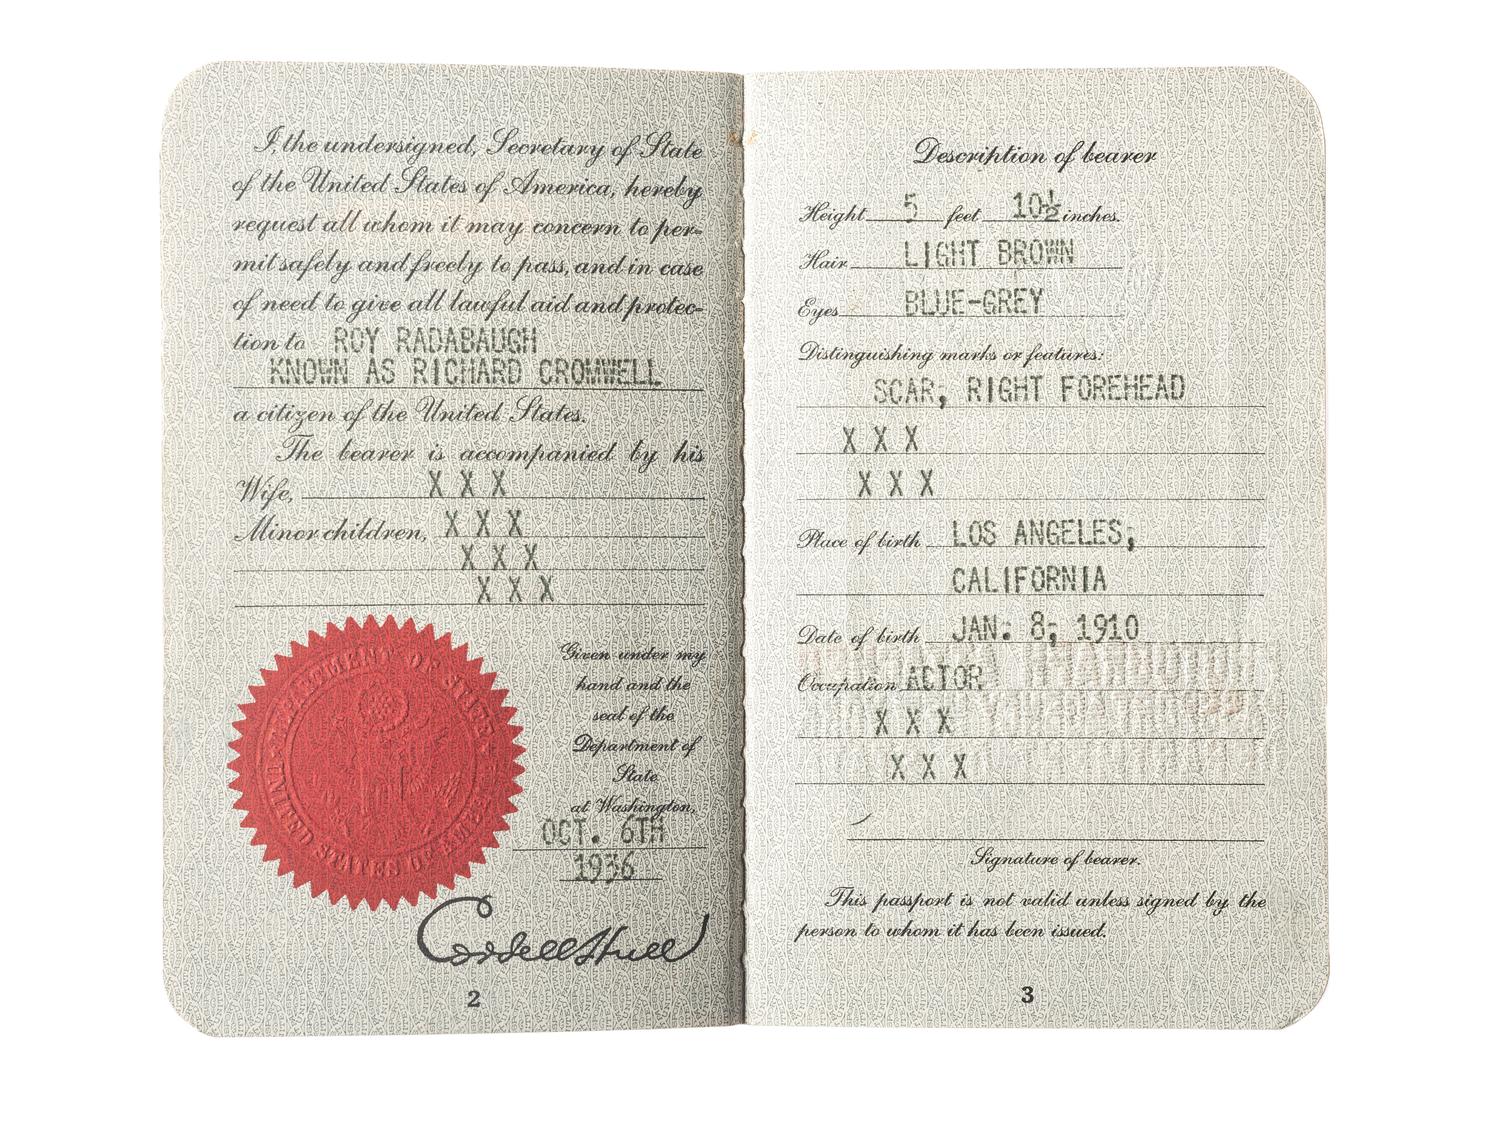 I, the undersigned, Secretary of State
of the United States of America, hereby
request all whom it may concern to per-
mit safely and freely to pass, and in case
of need to give all lawful aid and protec-
tion to ROY RADABAUGH
KNOWN AS RICHARD CROMWELL
a citizen of the United States.
The bearer is accompanied by his
Wife, X X X
Minor children, X X X
X X X
X X X
DEPARTMENT OF STATE
UNITED STATES OF AMERICA
Given under my
hand and the
seal of the
Department of
State
at Washington,
OCT. 6TH
1936
Cordell Hull
2
Description of bearer
Height 5 feet 10½ inches.
Hair LIGHT BROWN
Eyes BLUE-GREY
Distinguishing marks or features:
SCAR; RIGHT FOREHEAD
X X X
X X X
Place of birth LOS ANGELES;
CALIFORNIA
Date of birth JAN: 8; 1910
Occupation ACTOR
X X X
X X X
Signature of bearer.
This passport is not valid unless signed by the
person to whom it has been issued.
3